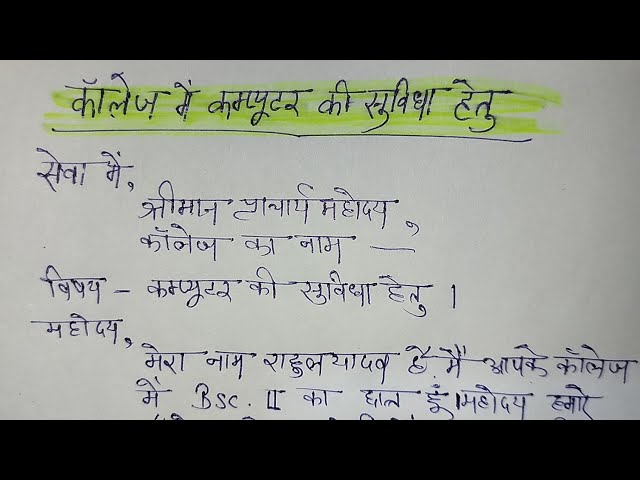 कॉलेज में कम्प्यूटर की सुविधा हेतु
सेवा में,
श्रीमान प्राचार्य महोदय,
कॉलेज का नाम —
विषय - कम्प्यूटर की सुविधा हेतु।
महोदय,
मेरा नाम राहुल यादव है. मैं आपके कॉलेज
में BSc. II का छात्र हूं। महोदय हमारे